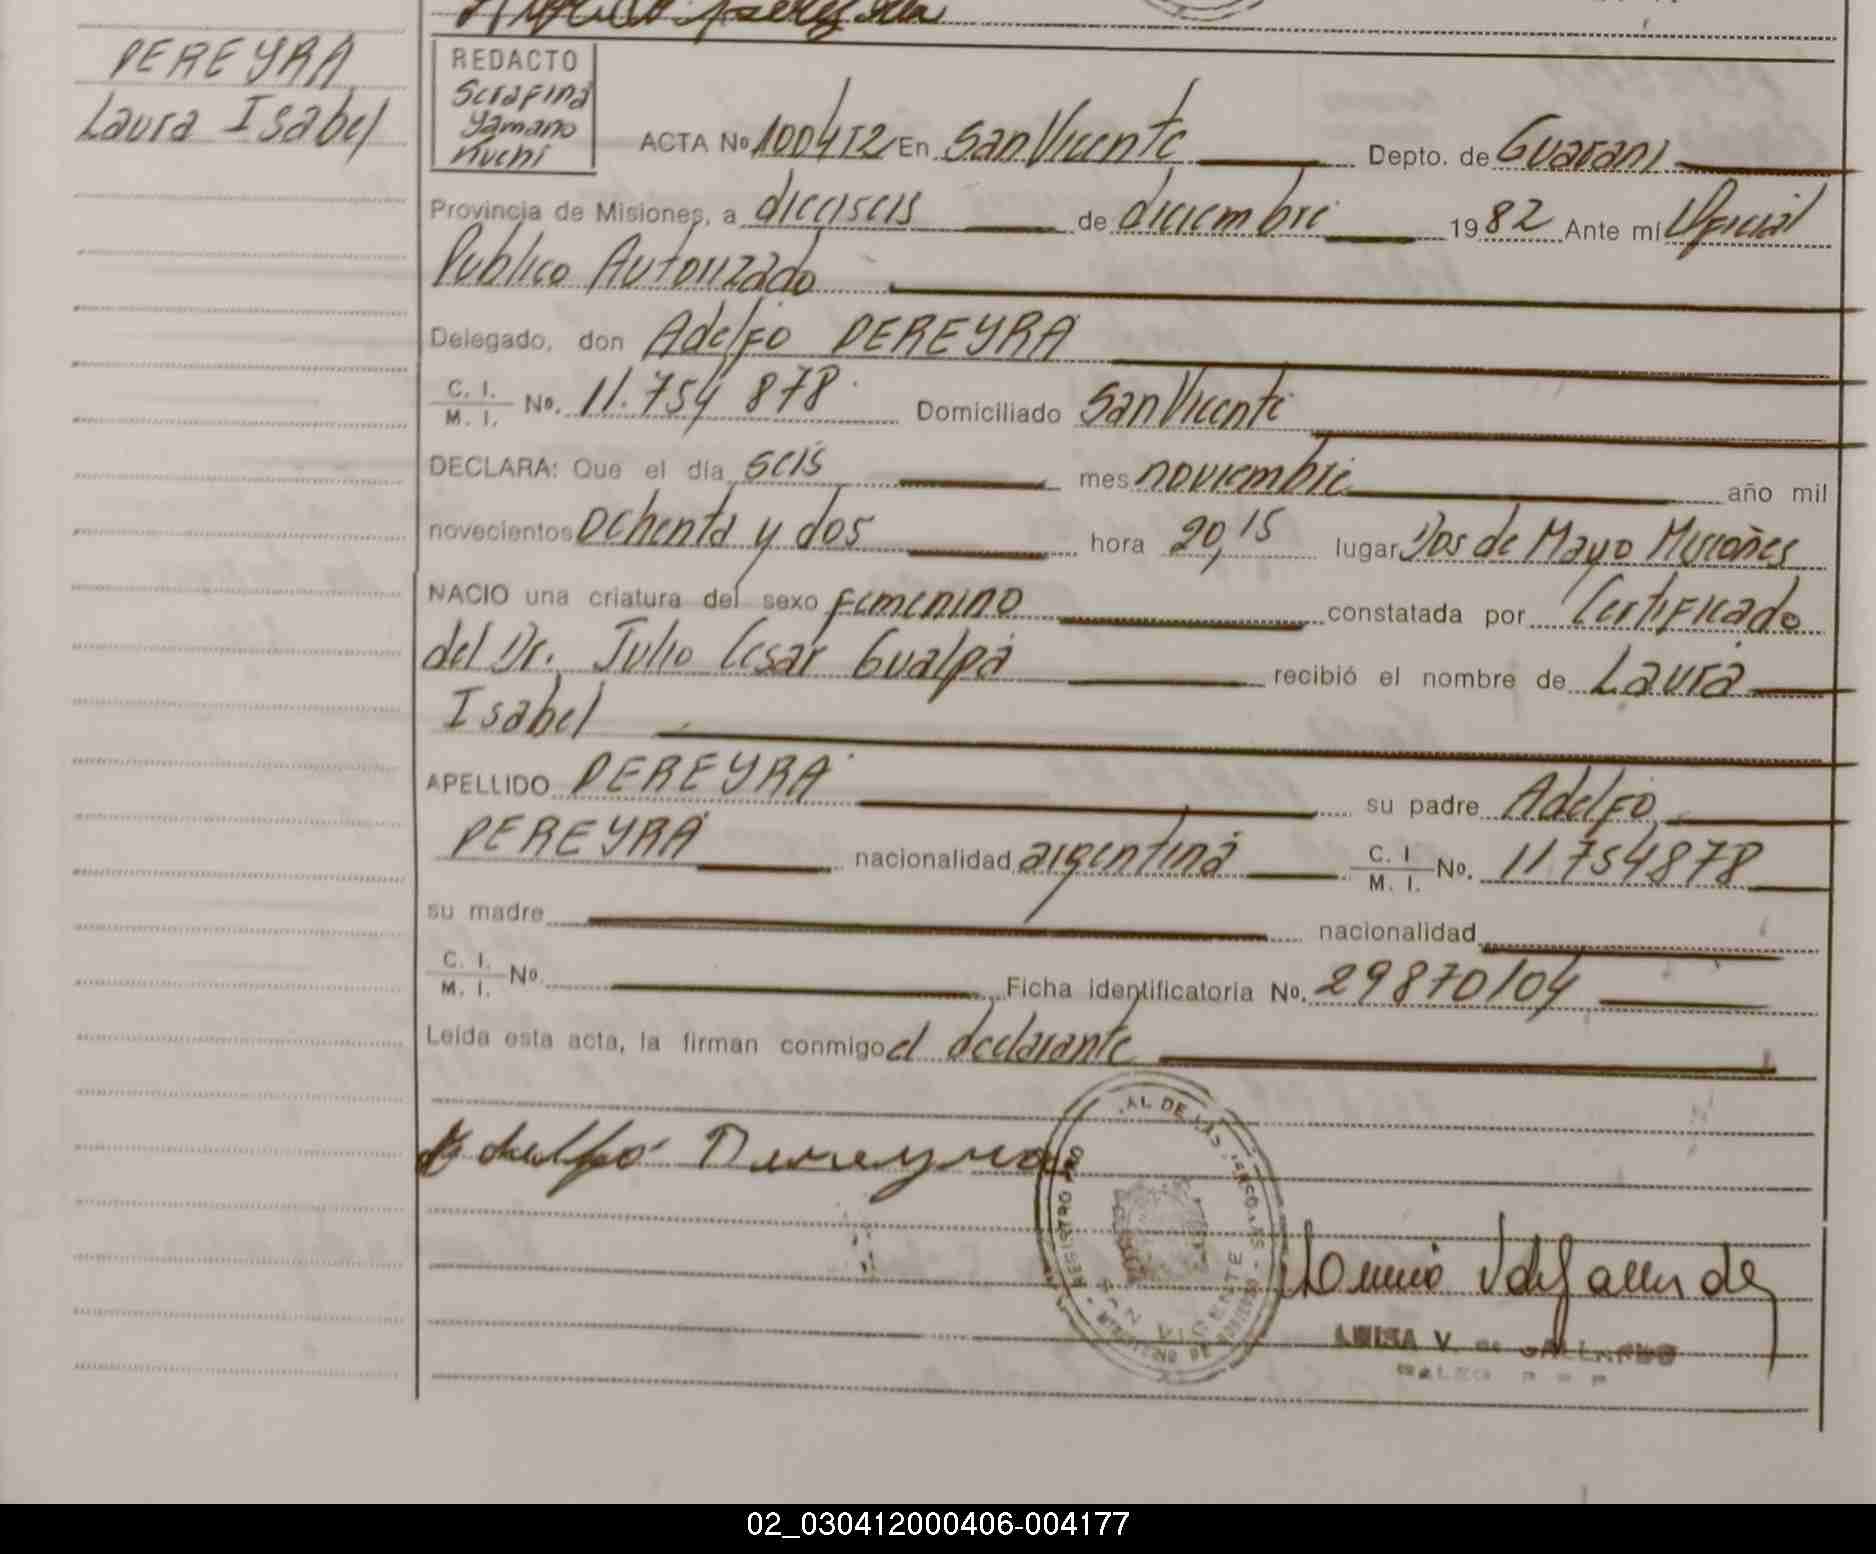 PEREYRA
Laura Isabel
REDACTO
Serafina
Yamano
Kuchi
ACTA No 100412 En San Vicente Depto. de Guarani
Provincia de Misiones, a dieciseis de diciembre 1982 Ante mí Oficial
Publico Autorizado
Delegado, don Adelfo PEREYRA
C. I. / M. I. No. 11.754 878 Domiciliado San Vicente
DECLARA: Que el día seis mes noviembre año mil
novecientos ochenta y dos hora 20,15 lugar Dos de Mayo Misiones
NACIO una criatura del sexo femenino constatada por Certificado
del Dr. Julio Cesar Gualpa recibió el nombre de Laura
Isabel
APELLIDO PEREYRA su padre Adelfo
PEREYRA nacionalidad argentina C. I / M. I. No. 11754878
su madre nacionalidad
C. I. / M. I. No. Ficha identificatoria No. 29870104
Leída esta acta, la firman conmigo el declarante
Adelfo Pereyra
AL DE LAS
SAN VICENTE
LUISA V. de GALLARDO
02_030412000406-004177